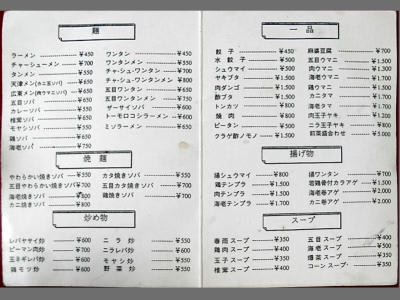 麺
ラーメン ¥450
チャーシューメン ¥700
タンメン ¥550
天津メン(カニ玉ソバ) ¥650
広東メン(肉ウマニソバ) ¥650
五目ソバ ¥650
カレーソバ ¥550
椎茸ソバ ¥650
モヤシソバ ¥550
鶏ソバ ¥650
海老ソバ ¥750
ワンタン ¥450
チャ・シュ・ワンタン ¥700
チャ・シュ・ワンタンメン ¥800
五目ワンタン ¥650
五目ワンタンメン ¥750
ザーサイソバ ¥650
トーモロコシラーメン ¥600
ミソラーメン ¥650
焼麺
やわらかい焼きソバ ¥550
五目やわらかい焼きソバ ¥700
海老焼きソバ ¥800
カニ焼きソバ ¥800
カタ焼きソバ ¥550
五目カタ焼きソバ ¥700
鶏焼きソバ ¥700
炒め物
レバヤサイ炒 ¥600
ピーマン肉炒 ¥700
玉ネギレバ炒 ¥600
鶏モツ炒 ¥600
ニラ炒 ¥550
ニラレバ炒 ¥600
モヤシ炒 ¥550
野菜炒 ¥550
一品
餃子 ¥450
水餃子 ¥500
シュウマイ ¥500
ヤキブタ ¥1.500
肉ダンゴ ¥1.500
酢ブタ ¥1.500
トンカツ ¥800
焼肉 ¥800
ピータン ¥500
クラゲ酢ノモノ ¥1.500
麻婆豆腐 ¥700
五目ウマニ ¥1.500
肉ウマニ ¥1.300
海老ウマニ ¥1.700
鶏ウマニ ¥1.500
カニタマ ¥1.700
海老タマ ¥1.700
肉玉ヤキ ¥1.200
ニラ玉ヤキ ¥1.200
前菜盛合わせ ¥5.000
揚げ物
揚シュウマイ ¥800
鶏テンプラ ¥1.500
肉テンプラ ¥1.500
海老テンプラ ¥1.700
揚ワンタン ¥700
若鶏骨付カラアゲ ¥1.500
海老巻アゲ ¥2.000
カニ巻アゲ ¥2.000
スープ
春雨スープ ¥350
鶏スープ ¥350
玉子スープ ¥350
椎茸スープ ¥350
五目スープ ¥400
海老スープ ¥400
コーンスープ ¥350